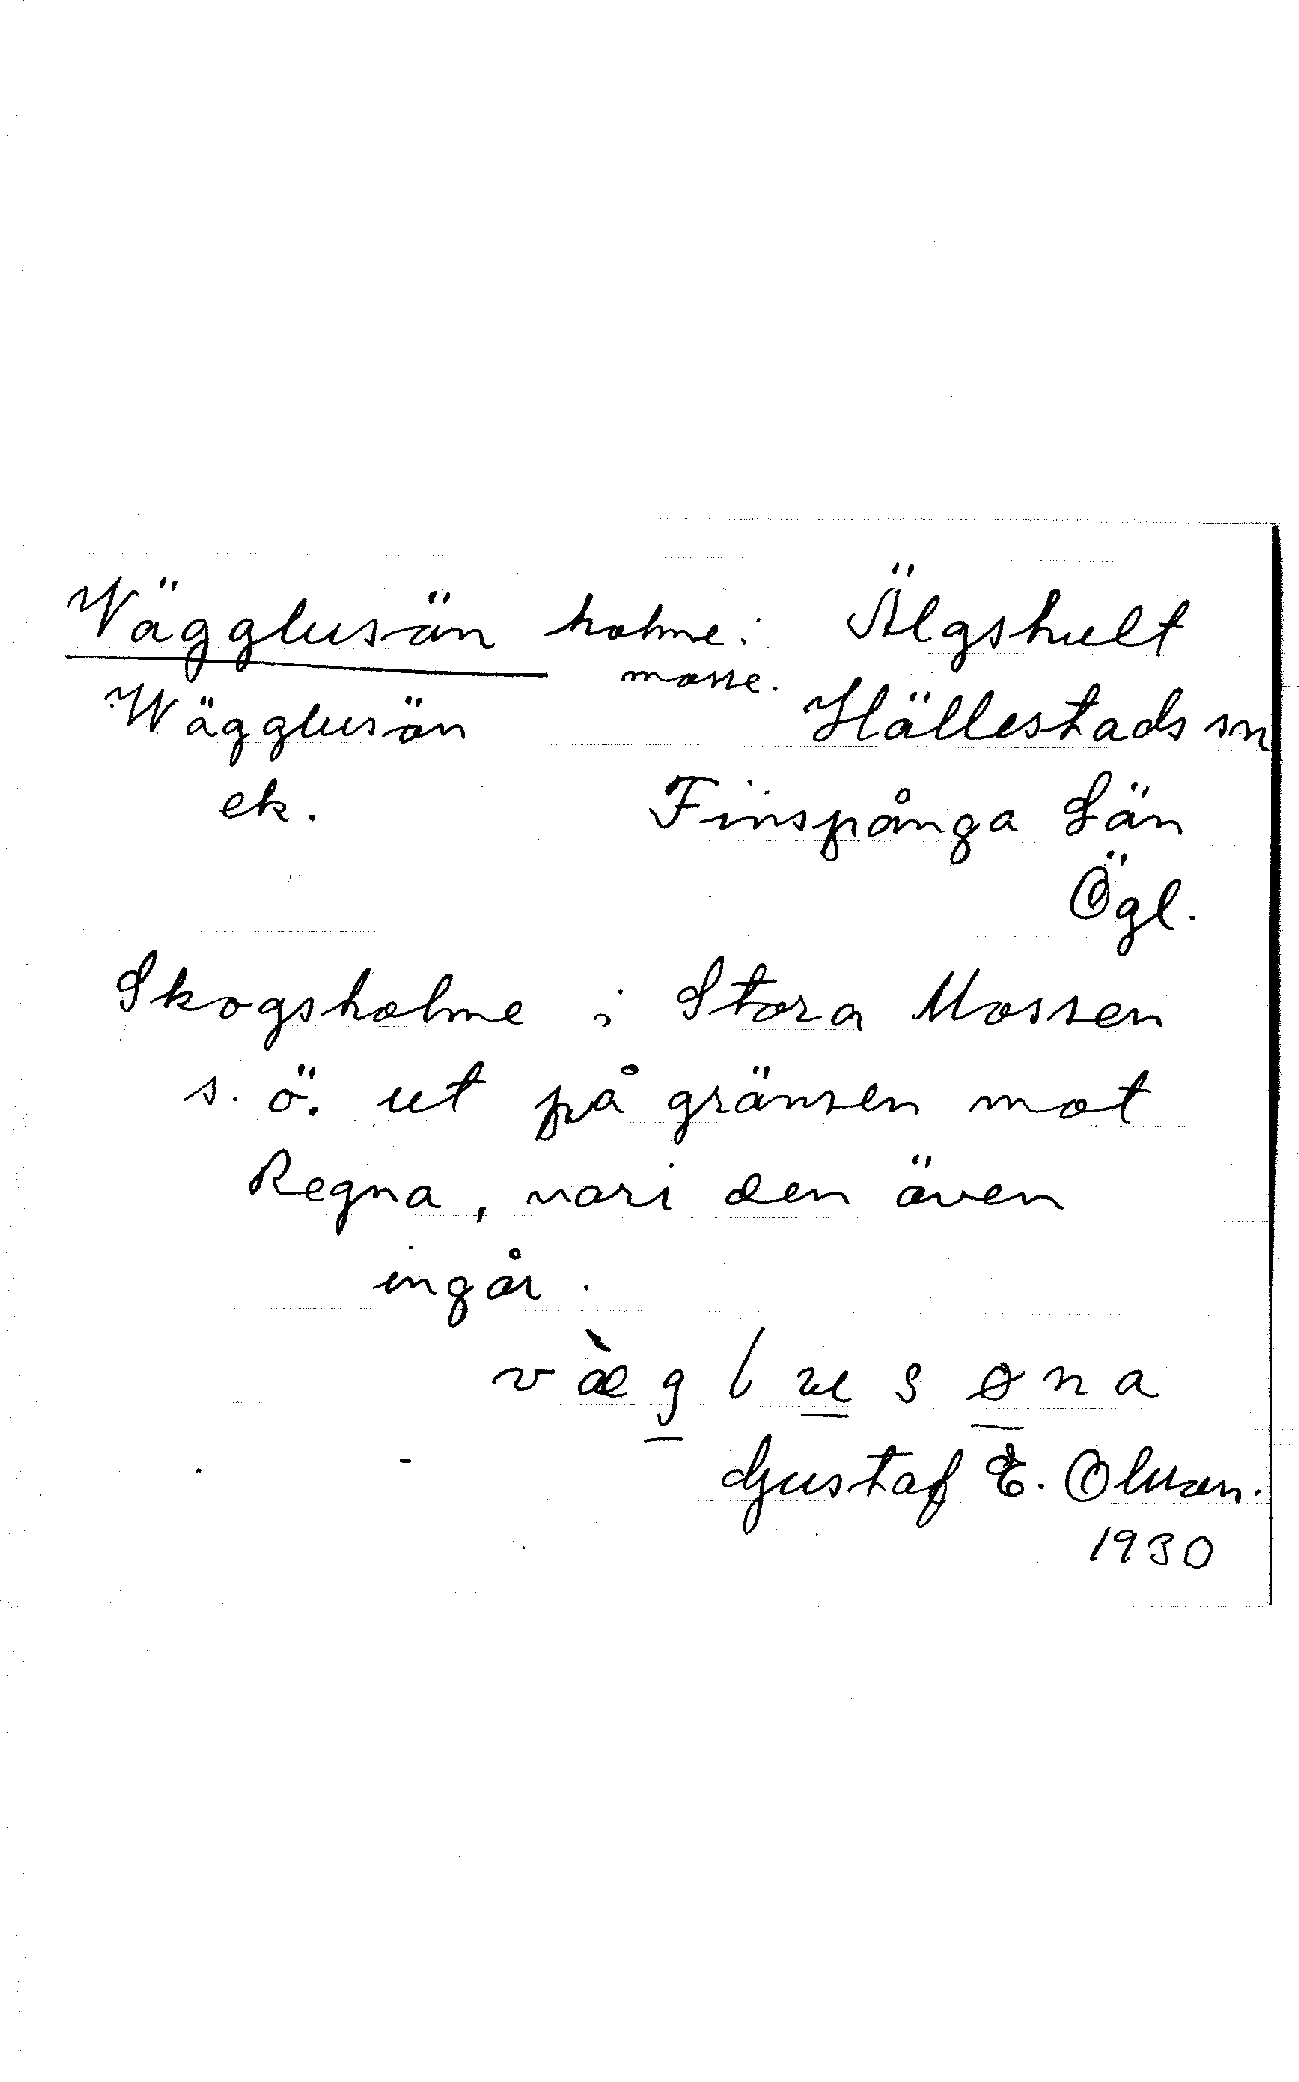 Wägglusön holme i Älgshult
mosse.
Wägglusön Hällestads sn
ek. Finspånga Län
Ögl.
Skogsholme i Stora Mossen
s. ö. ut på gränsen mot
Regna, vari den även
ingår.
vȁglusøna
Gustaf E. Olsson.
1930